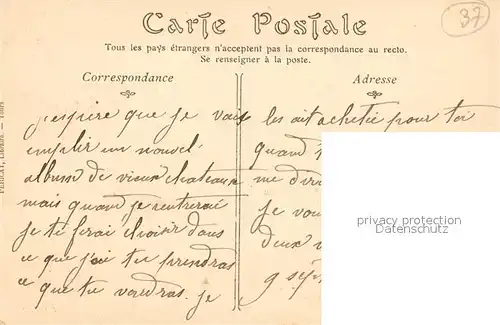 Carte Postale
37
Tous les pays étrangers n'acceptent pas la correspondance au recto.
Se renseigner à la poste.
Correspondance
Adresse
j'espère que je vais
emplir un nouvel
albusse de vieux chateaux
mais quand je rentrerai
je te ferai choisir dans
ce que j'ai tu prendras
ce que tu voudras. je
les ait achetée pour toi
quand
me dira
je vou
deux
9 sept
privacy protection
Datenschutz